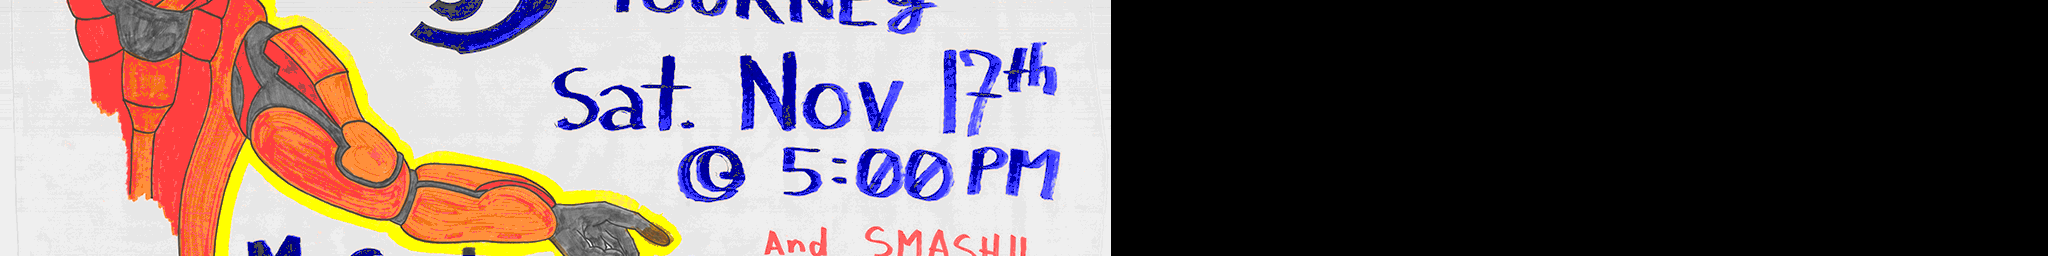 TOURNEY
Sat. Nov 17th
@ 5:00 PM
And SMASH!!